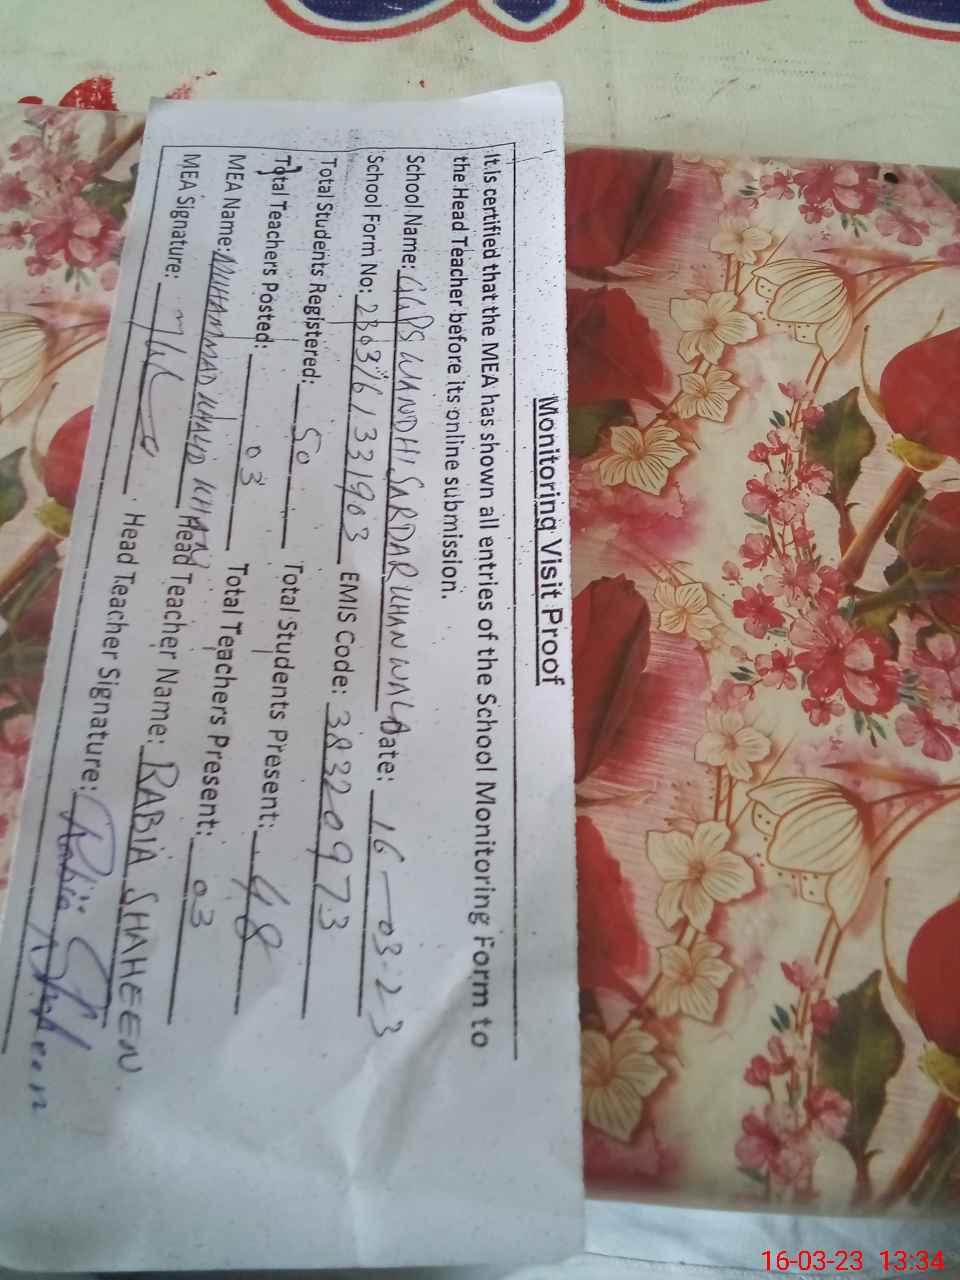 Monitoring Visit Proof
It is certified that the MEA has shown all entries of the School Monitoring Form to
the Head Teacher before its online submission.
School Name: GGPS WANDHI SARDAR KHAN WALA Date: 16-03-23
School Form No: 2303761331903 EMIS Code: 38320973
Total Students Registered: 50 Total Students Present: 48
Total Teachers Posted: 03 Total Teachers Present: 03
MEA Name: MUHAMMAD KHALID KHAN Head Teacher Name: RABIA SHAHEEN.
MEA Signature: Head Teacher Signature: Rabia Shaheen
16-03-23 13:34